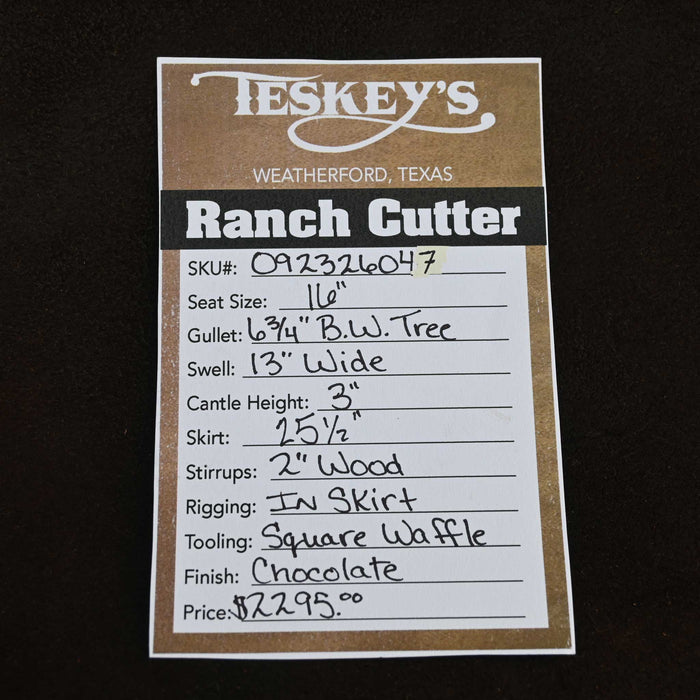 TESKEY'S
WEATHERFORD, TEXAS
Ranch Cutter
SKU#: 092326047
Seat Size: 16"
Gullet: 6 3/4" B.W. Tree
Swell: 13" Wide
Cantle Height: 3"
Skirt: 25 1/2"
Stirrups: 2" Wood
Rigging: In Skirt
Tooling: Square Waffle
Finish: Chocolate
Price: $2295.00